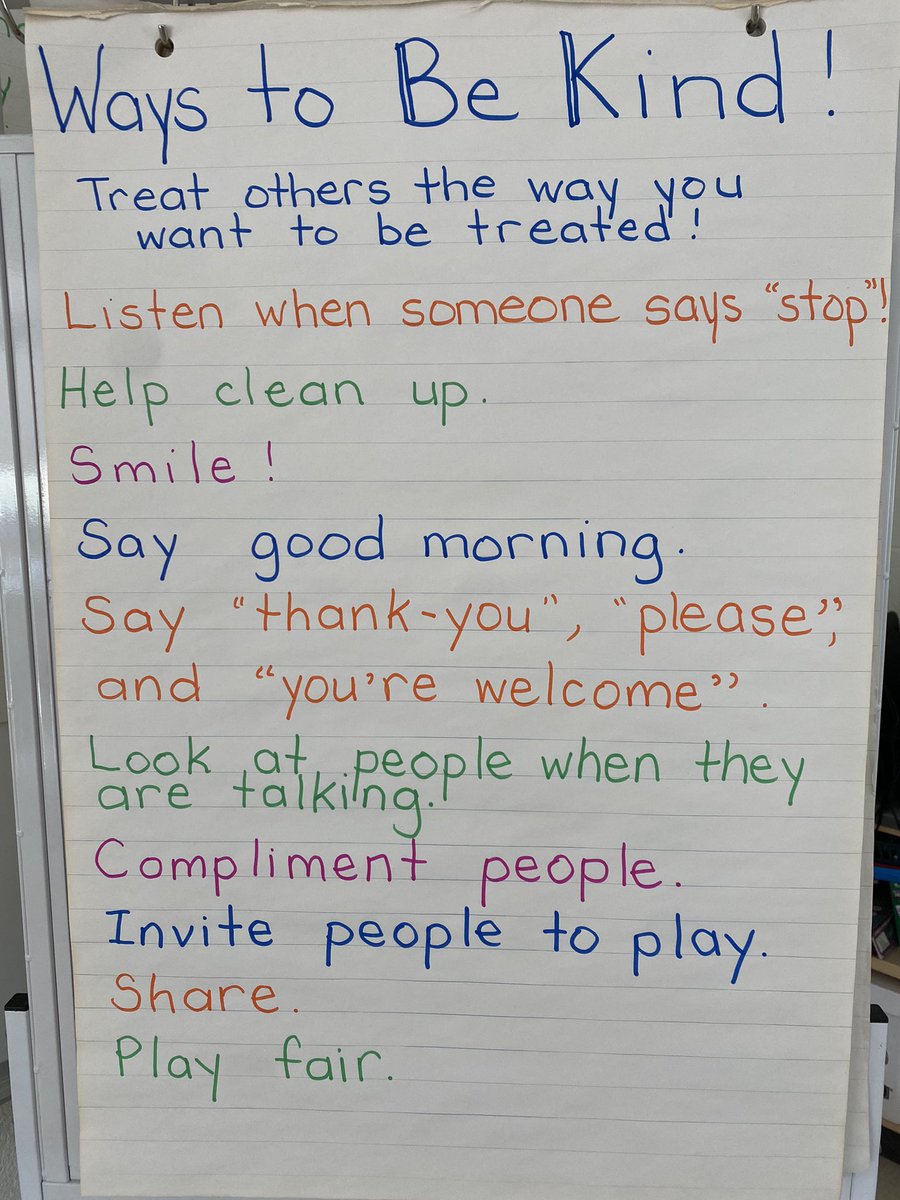 Ways to Be Kind!
Treat others the way you
want to be treated!
Listen when someone says "stop"!
Help clean up.
Smile!
Say good morning.
Say "thank-you", "please",
and "you're welcome".
Look at people when they
are talking.
Compliment people.
Invite people to play.
Share.
Play fair.